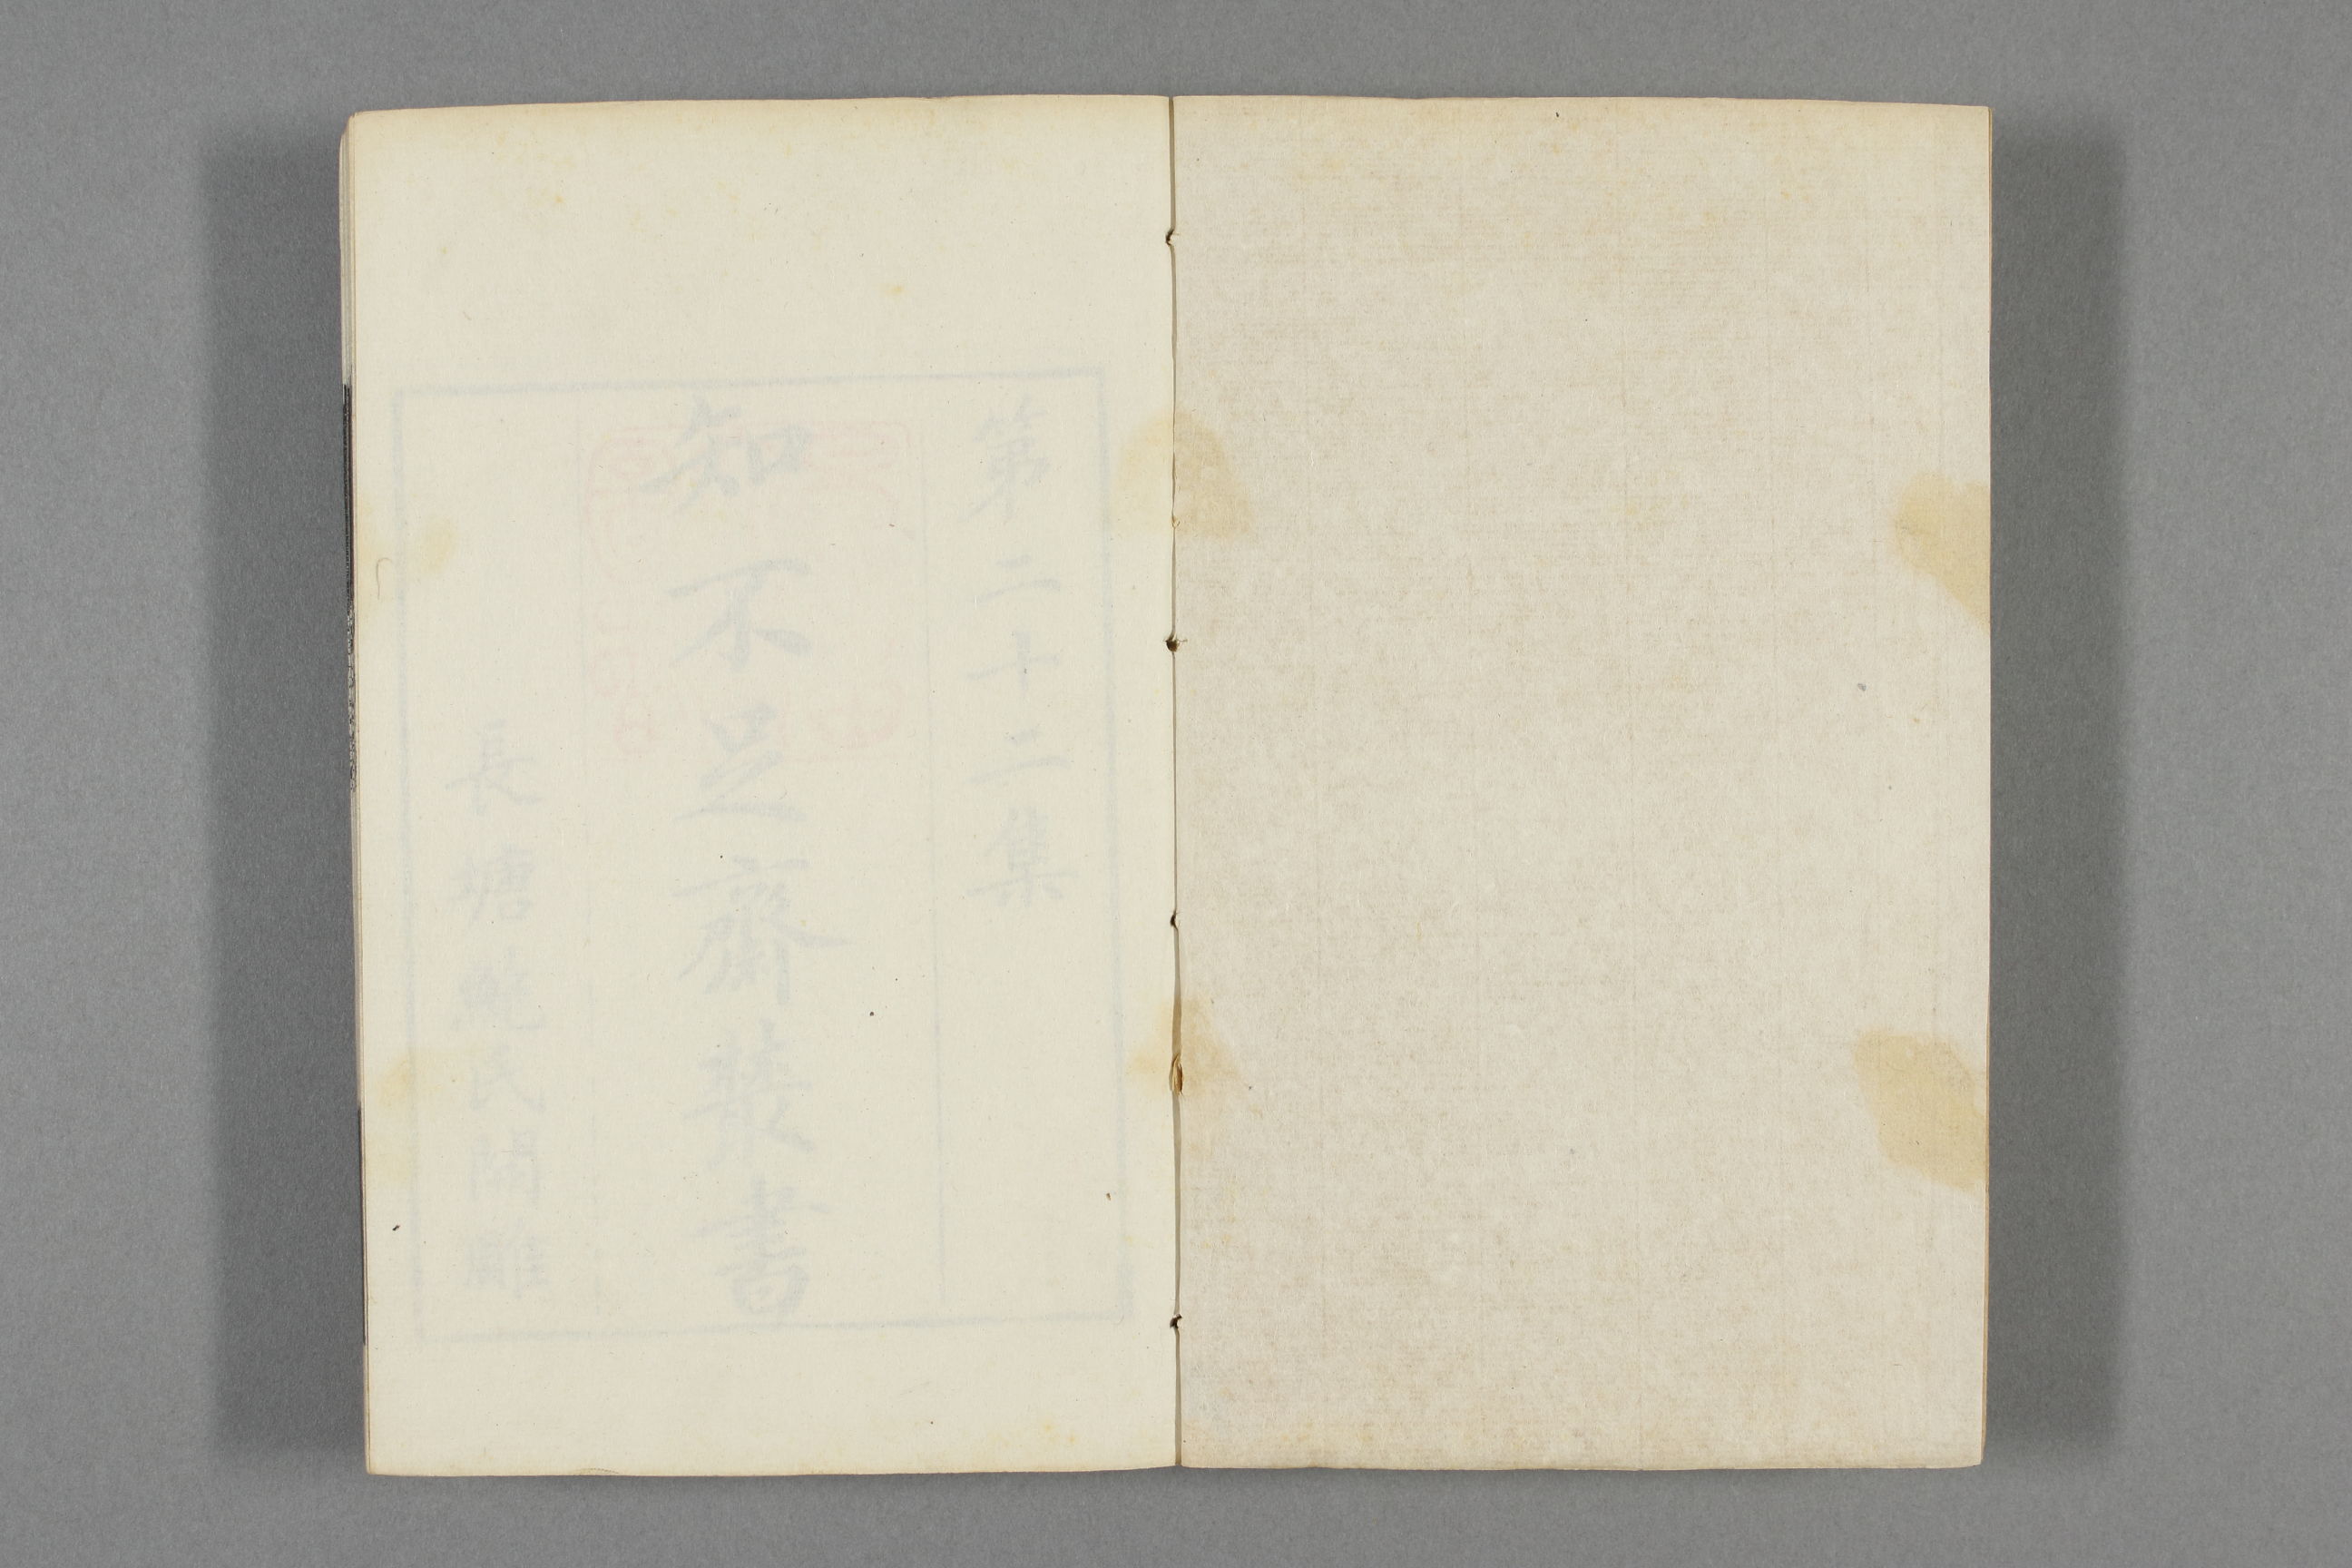 第二十二集
知不足齋叢書
長塘鮑氏開雕